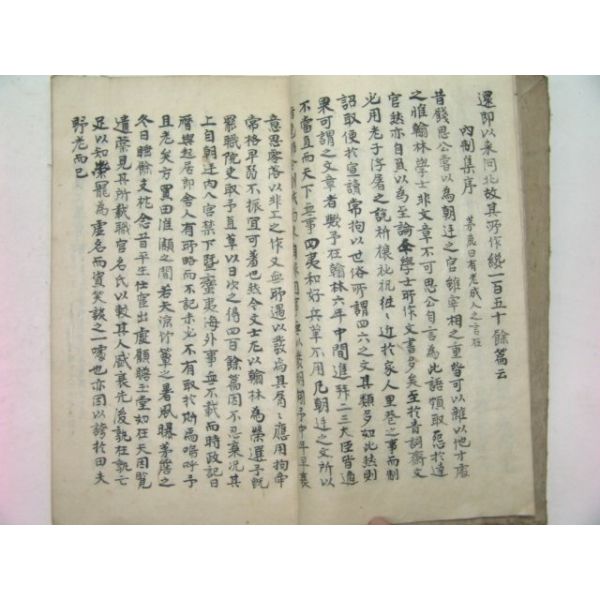 還即以來河北故其所作纔一百五十餘篇云
內制集序 茅鹿曰有老成人之言在
昔錢思公嘗以為朝廷之官雖宰相之重皆可以雜以他才處
之惟翰林學士非文章不可思公自言為此語頗取怒於達
官然亦自負以為至論今學士所作文書多矣至於青詞齋文
必用老子浮屠之說祈禳秘祝往往近於家人里巷之事而制
詔取便於宣讀常拘以世俗所謂四六之文其類多如此然則
果可謂之文章者歟予在翰林六年中間進拜二三大臣皆適
不當直而天下無事四夷和好兵革不用凡朝廷之文所以
意思零落以非工之作又無所遇以發為其屑屑應用拘牽
常格卑弱不振宜可羞也然今文士尤以翰林為榮選予既
罷職院吏取予直草以日次之得四百餘篇因不忍棄況其
上自朝廷內及宮禁下暨蠻夷海外事無不載而時政記日
曆與起居即舍人有所略而不記未必不有取於斯焉嗚呼予
且老矣方買田淮潁之間若夫涼竹簟之暑風曝茅簷之
冬日睡餘支枕念昔平生仕宦出處顧瞻玉堂如在天上因覽
遺藁見其所載職官名氏以較其人盛衰先後孰在孰亡
足以知榮寵為虛名而資笑談之一噱也亦因以誇於田夫
野老而已